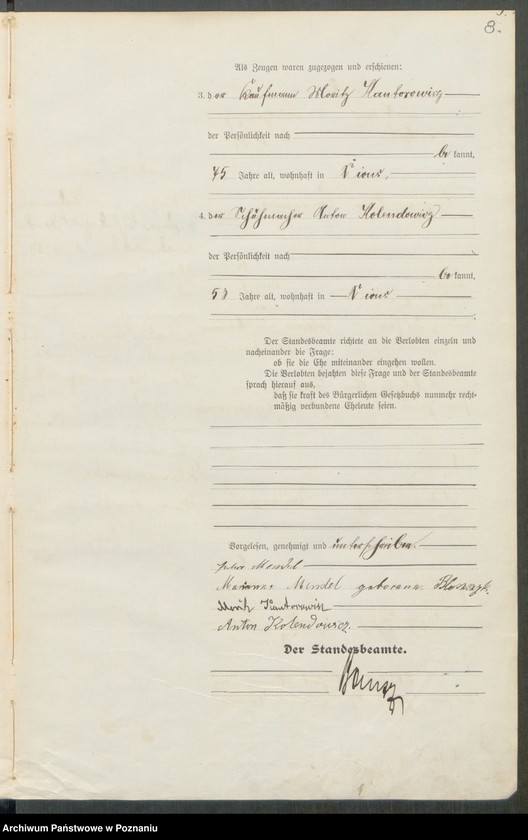 8.
Als Zeugen waren zugezogen und erschienen:
3. der Kaufmann Moritz Kantorowicz
der Persönlichkeit nach
be kannt,
45 Jahre alt, wohnhaft in Xions,
4. der Schuhmacher Anton Kolendowicz
der Persönlichkeit nach
be kannt,
58 Jahre alt, wohnhaft in Xions
Der Standesbeamte richtete an die Verlobten einzeln und
nacheinander die Frage:
ob sie die Ehe miteinander eingehen wollen.
Die Verlobten bejahten diese Frage und der Standesbeamte
sprach hierauf aus,
daß sie kraft des Bürgerlichen Gesetzbuchs nunmehr recht-
mäßig verbundene Eheleute seien.
Vorgelesen, genehmigt und unterschrieben.
Mendel
Marianna Mendel geborene
Moritz Kantorowicz
Anton Kolendowicz.
Der Standesbeamte.
Archiwum Państwowe w Poznaniu